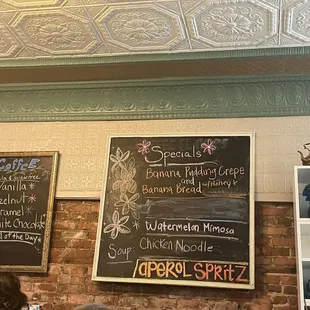 Coffee
Vanilla
Hazelnut
Caramel
White Chocolate
of the Day
Specials
Banana Pudding Crepe
and
Banana Bread w/Honey
Watermelon Mimosa
Soup: Chicken Noodle
APEROL SPRITZ